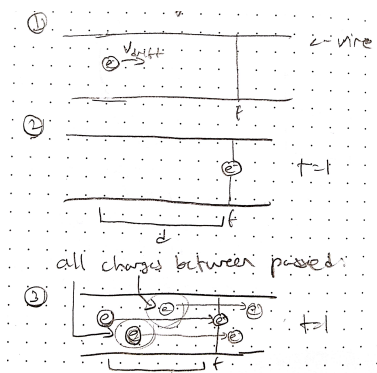 ①
V drift
e⁻
← wire
f
②
e⁻
t=1
d
f
all charges between passed:
③
e⁻ e⁻
e e⁻ t=1
e e⁻
f